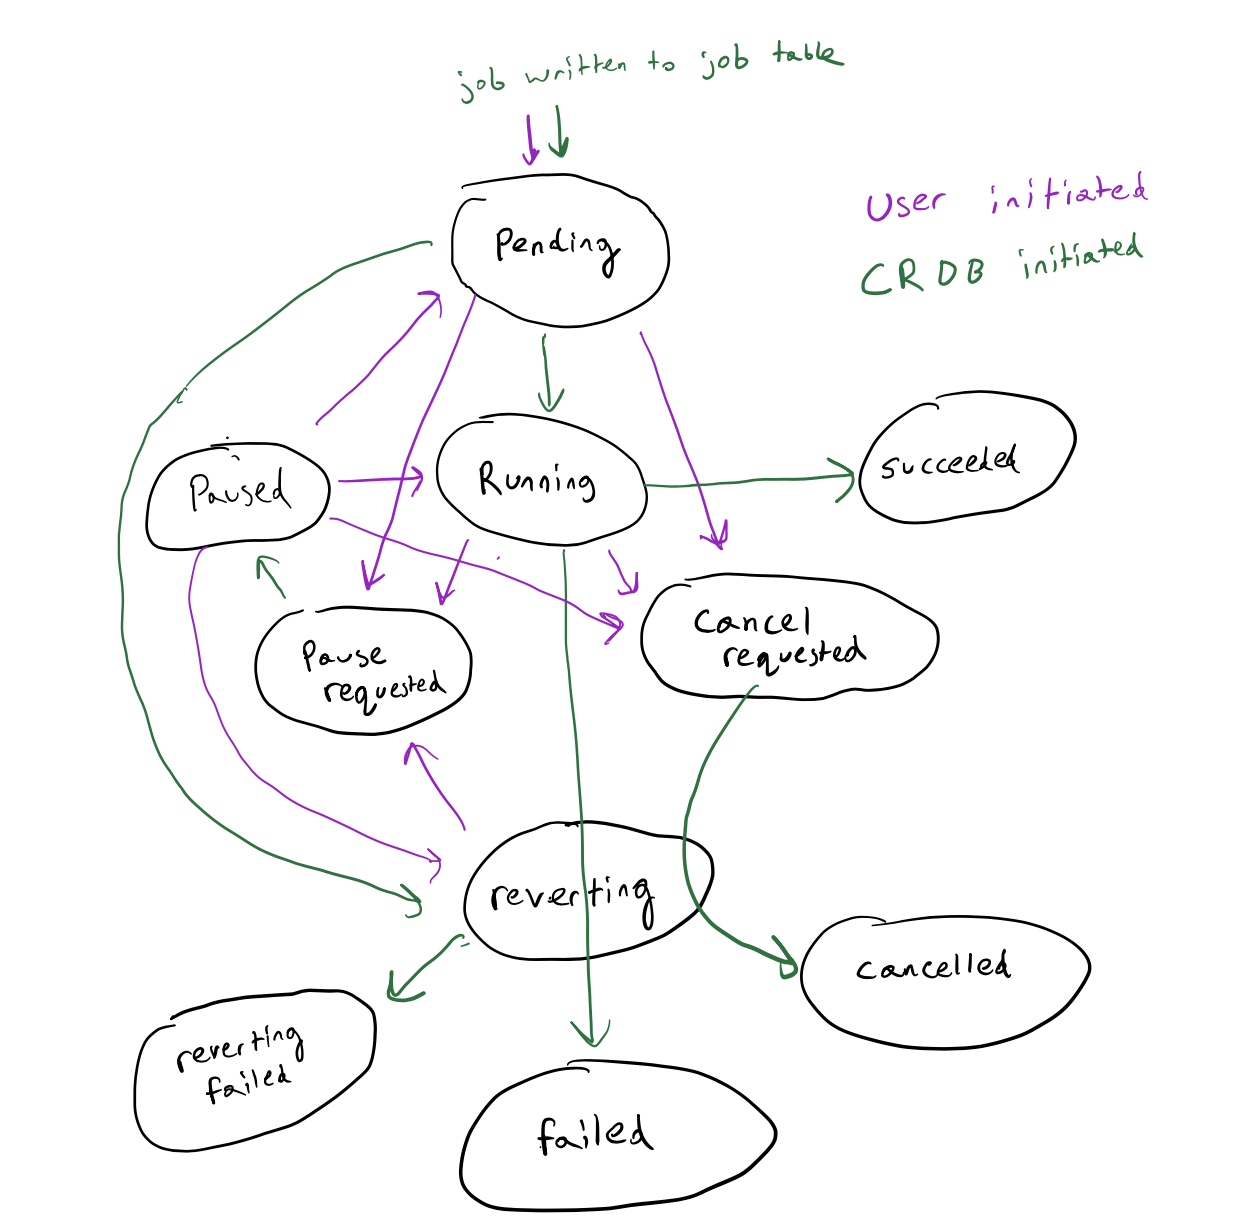 job written to job table
User initiated
CRDB initiated
Pending
succeeded
Running
Paused
Cancel
requested
Pause
requested
reverting
cancelled
reverting
failed
failed